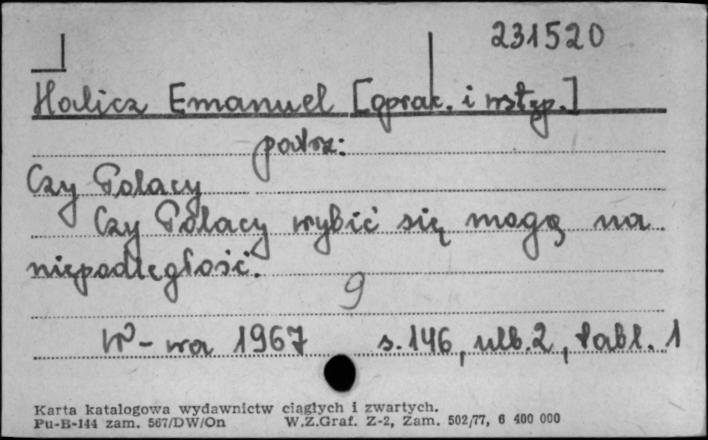 231520
Halicz Emanuel [oprac. i wstęp.]
patrz:
Czy Polacy
Czy Polacy wybić się mogą na
niepodległość.
9
W-wa 1967 s. 146, nlb. 2, tabl. 1
Karta katalogowa wydawnictw ciągłych i zwartych.
Pu-B-144 zam. 567/DW/On W.Z.Graf. Z-2, Zam. 502/77, 6 400 000